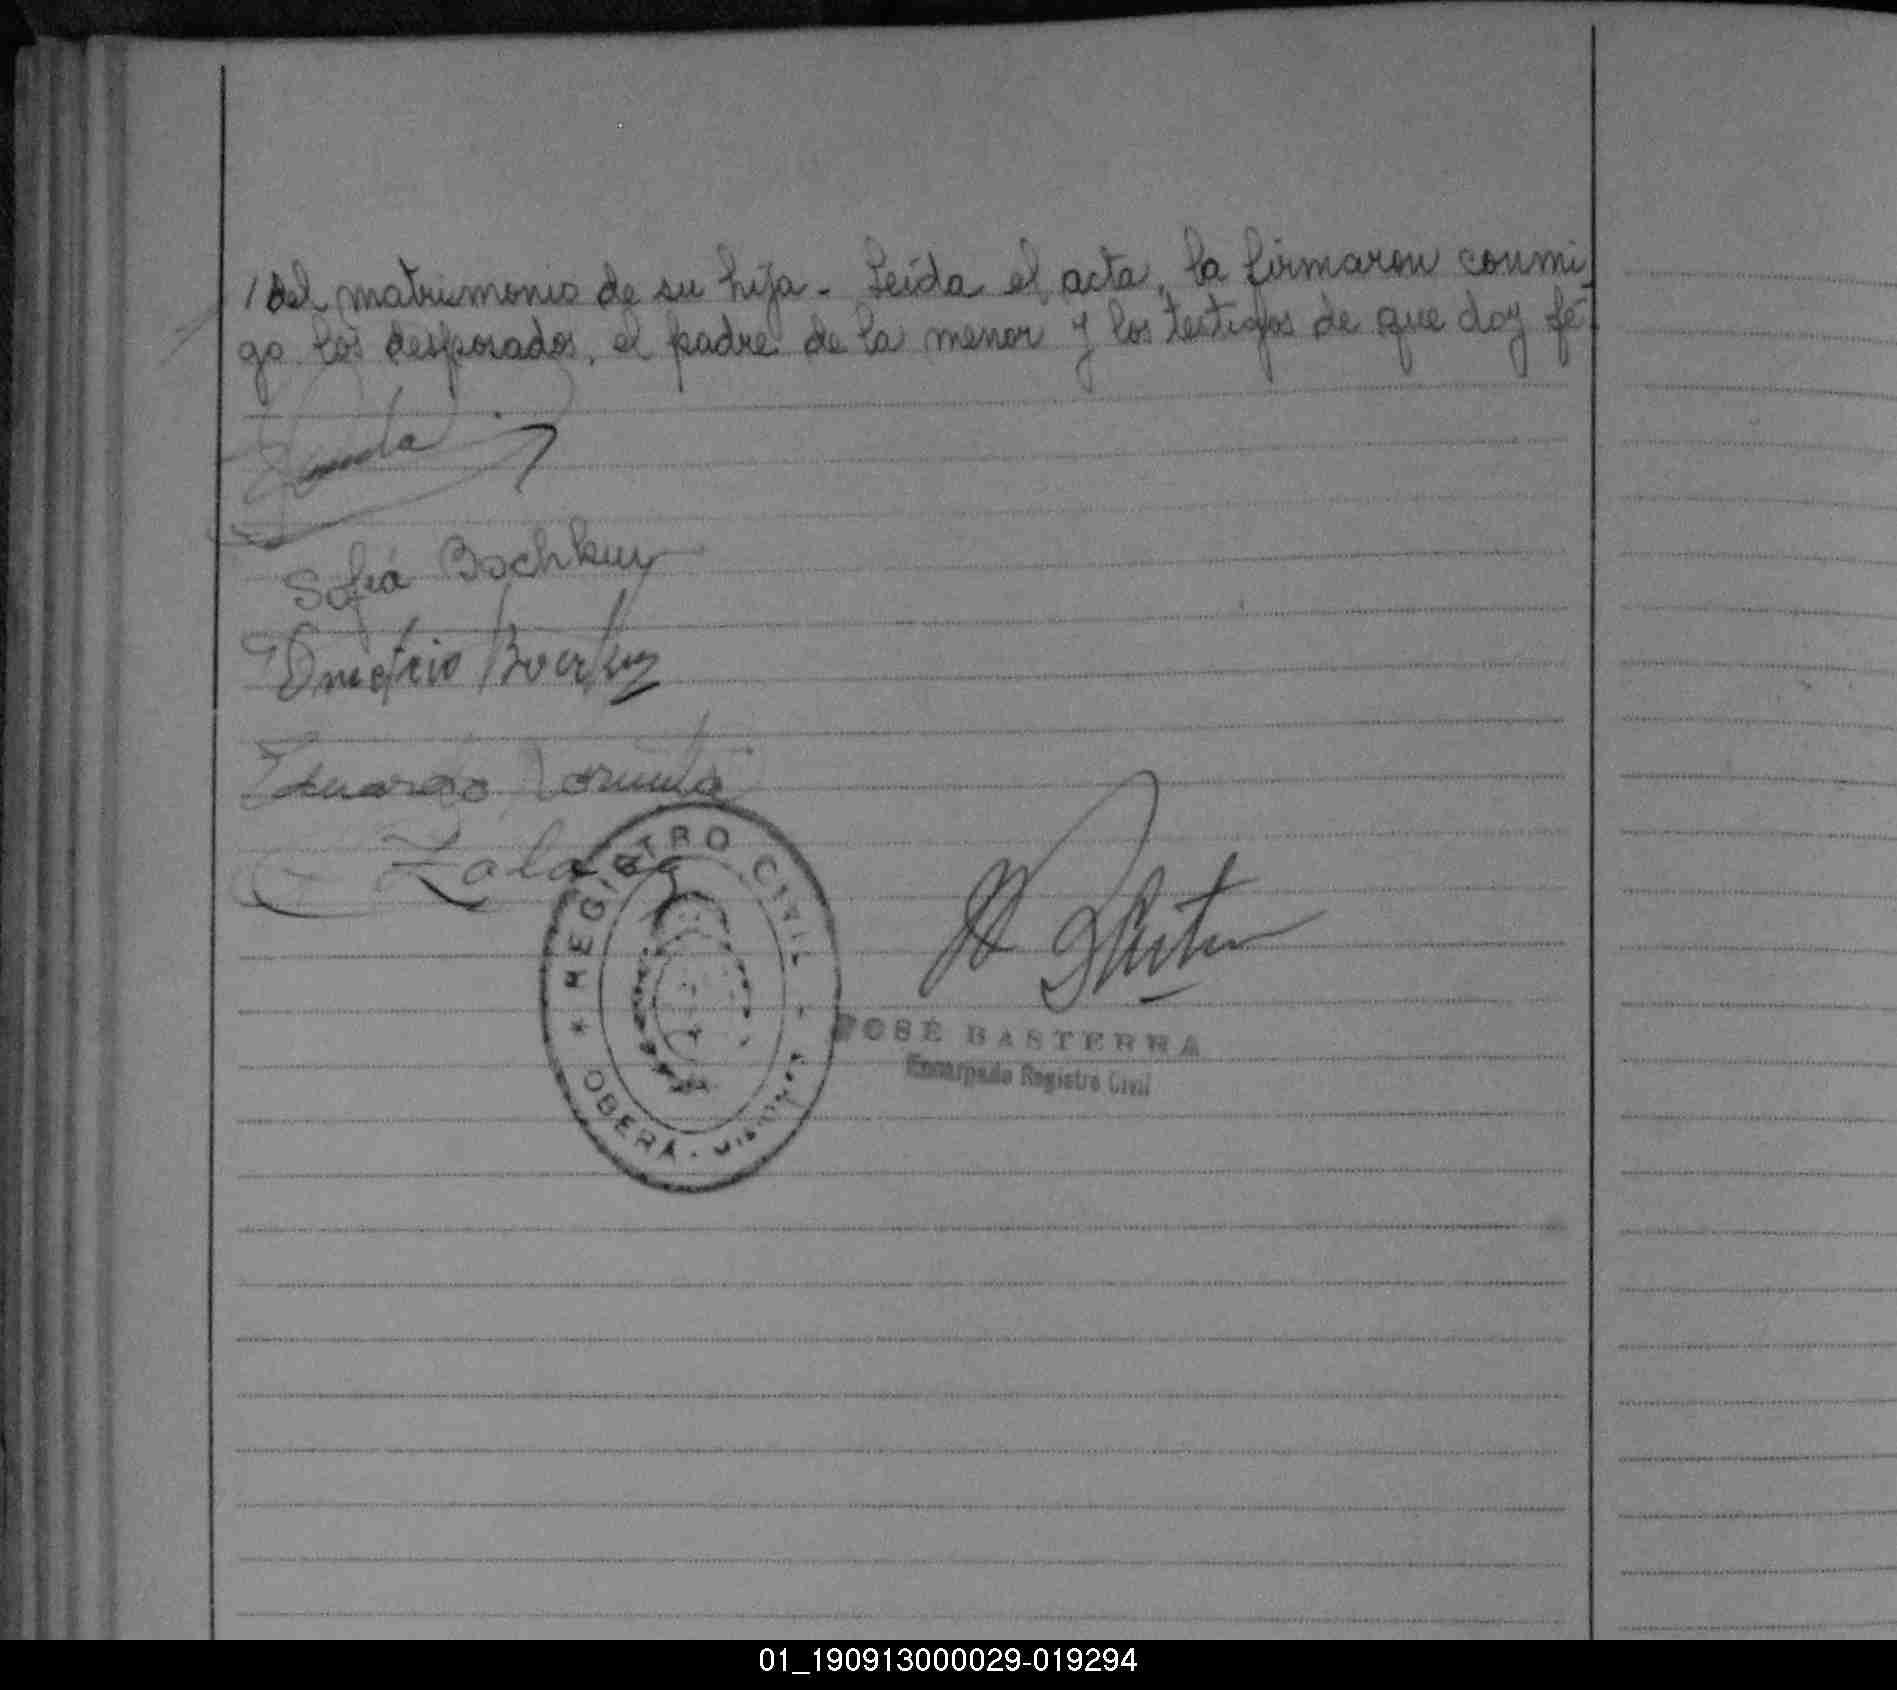 / del matrimonio de su hija - Leída el acta, la firmaron conmi
go los desposados, el padre de la menor y los testigos de que doy fé
Sofia Bochkuy
Dmetrio
Eduardo
REGISTRO CIVIL
* OBERÁ - MISIONES *
JOSÉ BASTERRA
Encargado Registro Civil
01_190913000029-019294